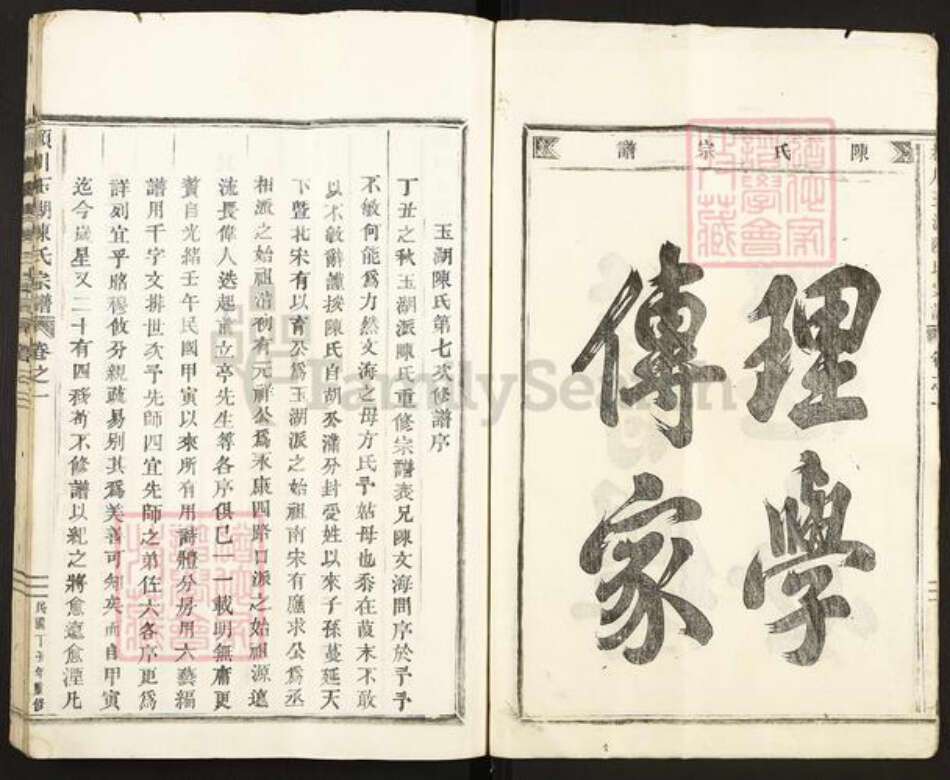 陳氏宗譜
理學
傳家
玉湖陳氏第七次修譜序
丁丑之秋玉湖派陳氏重修宗譜表兄陳文海問序於予予
不敏何能爲力然文海之母方氏予姑母也忝在葭末不敢
以不敏辭謹按陳氏自胡公滿分封受姓以來子孫蔓延天
下暨北宋有以育公爲玉湖派之始祖南宋有應求公爲丞
相派之始祖元初有元祥公爲永康四路口派之始祖源遠
流長偉人迭起前立亭先生等各序俱已一一載明無庸更
贅自光緒壬午民國甲寅以來所有用辭體分房用六藝編
譜用千字文排世次予先師四宜先師之弟佐六各序更爲
詳列宜乎昭穆攸分親疏易別其爲美善可知矣而自甲寅
迄今歲星又二十有四移苟不修譜以紀之將愈遠愈湮凡
潁川玉湖陳氏宗譜 卷之一
民國丁丑年重修
FamilySearch